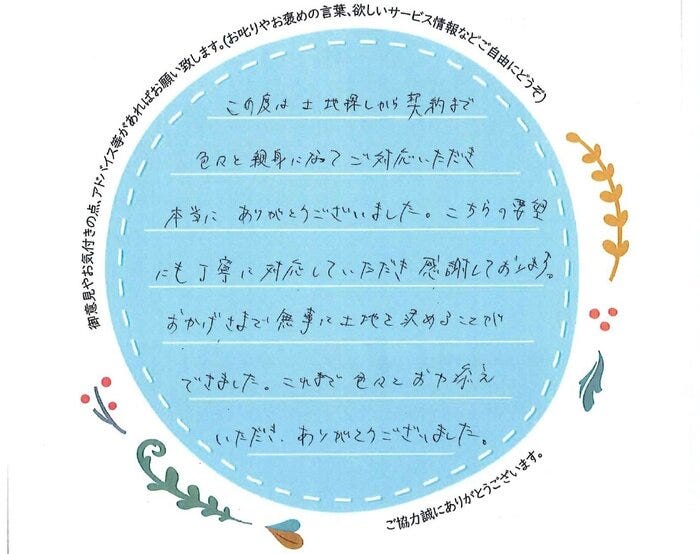 御意見やお気付きの点、アドバイス等があればお願い致します。(お叱りやお褒めの言葉、欲しいサービス情報などご自由にどうぞ)
この度は土地探しから契約まで
色々と親身になってご対応いただき
本当にありがとうございました。こちらの要望
にも丁寧に対応していただき感謝しております。
おかげさまで無事に土地を決めることが
できました。これまで色々とお力添え
いただき、ありがとうございました。
ご協力誠にありがとうございます。